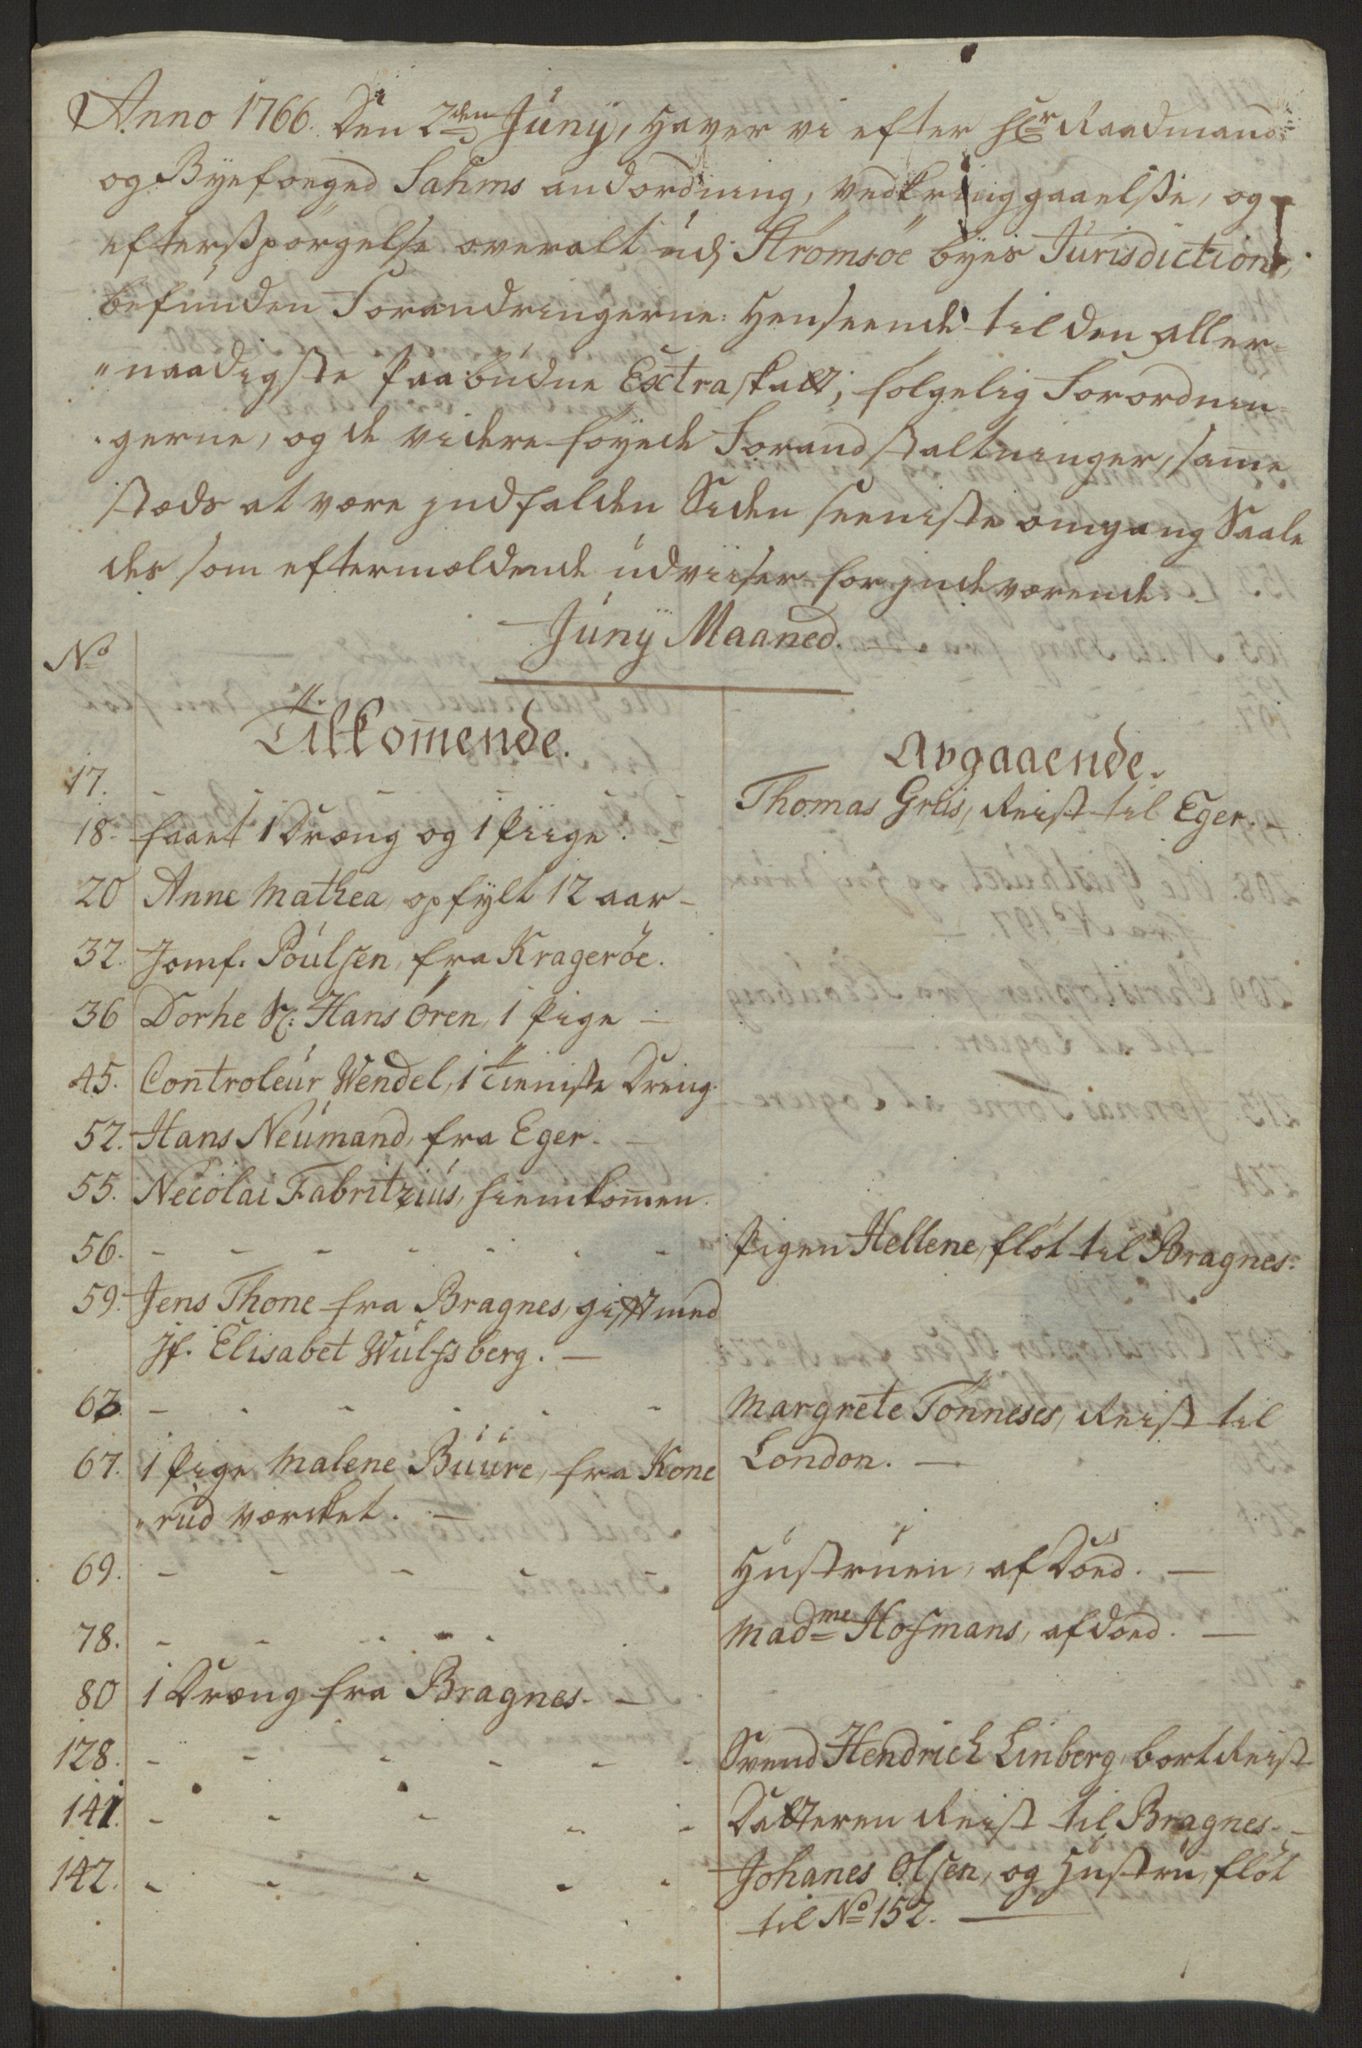 Anno 1766. Den 2den Juny, haver vi efter Hr Raadmand
og Byefoeged Sahms andordning, vedkringgaaelsse, og
efterspörgelse overalt udj Strömsöe byes Jurisdiction,
befunden Forandringerne: henseende til den aller¬
"naadigste paabudne Extraskatt, fölgelig Forordnin
gerne, og de videre föyede Foranstaltninger, samme
stæds at være jndfalden Siden seeniste omgang Saale
des som eftermeldende udviiser for jndeværende
Juny Maaned.
No
Tilkommende.
Avgaaende.
17. - - - - - Thomas Grüs, Reist til Eger. -
18. faaet 1 Dræng og 1 Piige. -
20 Anne Mathea, opfylt 12 aar -
32. Jomf. Poulsen, fra Krageröe.
36 Dorhe Sl: Hans Ören, 1 Pige -
45. Controleur Wendel, 1 Tieniste Dreng.
52. Hans Neumand, fra Eger. -
55. Necolai Fabritzius, hiemkommen.
56. - - - - - - - Pigen Hellene, flöt til Bragnes.
59. Jens Thone fra Bragnes, gift med
Jf. Elisabet Wulfsberg. -
63. - - - - - - Margrete Tönneses, Reist til
London. -
67. 1 Pige Malene Buure, fra Kone
"rud værcket. -
69. - - - - - Hustruen, af Död. -
78. - - - - - Madme Hofmans, afdöed. -
80 1 Dræng fra Bragnes. -
128. - - - - - - Svend Hendrich Linberg, bortReist
141. - - - - - Datteren Reist til Bragnes. -
142. - - - - - Johanes Olsen, og Hustru, flöt
til No 152. -